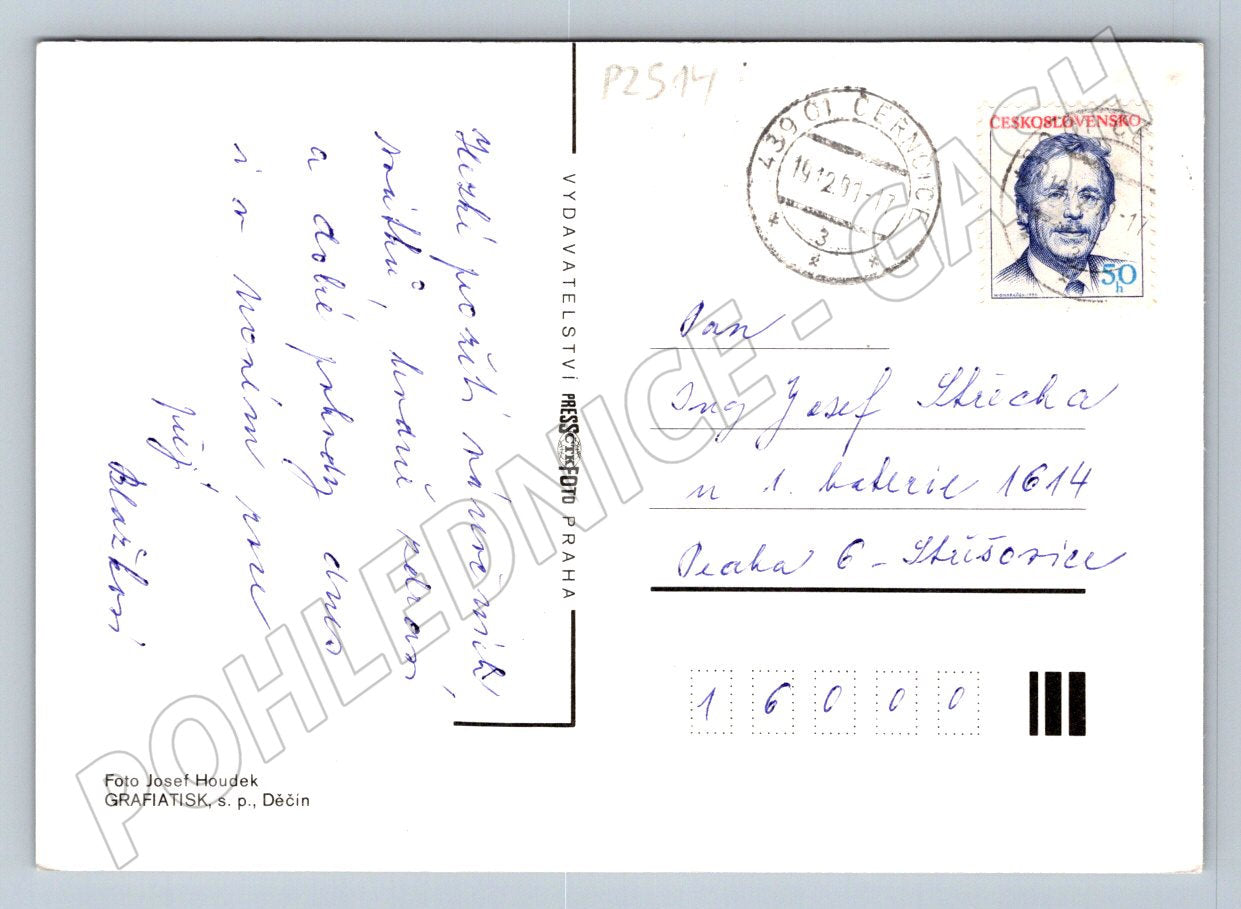 Hezké prožití vánočních
svátků, hodně zdraví,
a dobré pohody dnes
i v novém roce
přejí
Blažkovi
VYDAVATELSTVÍ PRESSFOTO PRAHA
ČTK
P2514
439 01 ČERNČICE
14.12.91-17
3
ČESKOSLOVENSKO
50
h
Pan
Ing Josef Střecha
u 1. baterie 1614
Praha 6 - Střešovice
16000
Foto Josef Houdek
GRAFIATISK, s. p., Děčín
POHLEDNICE - GASH